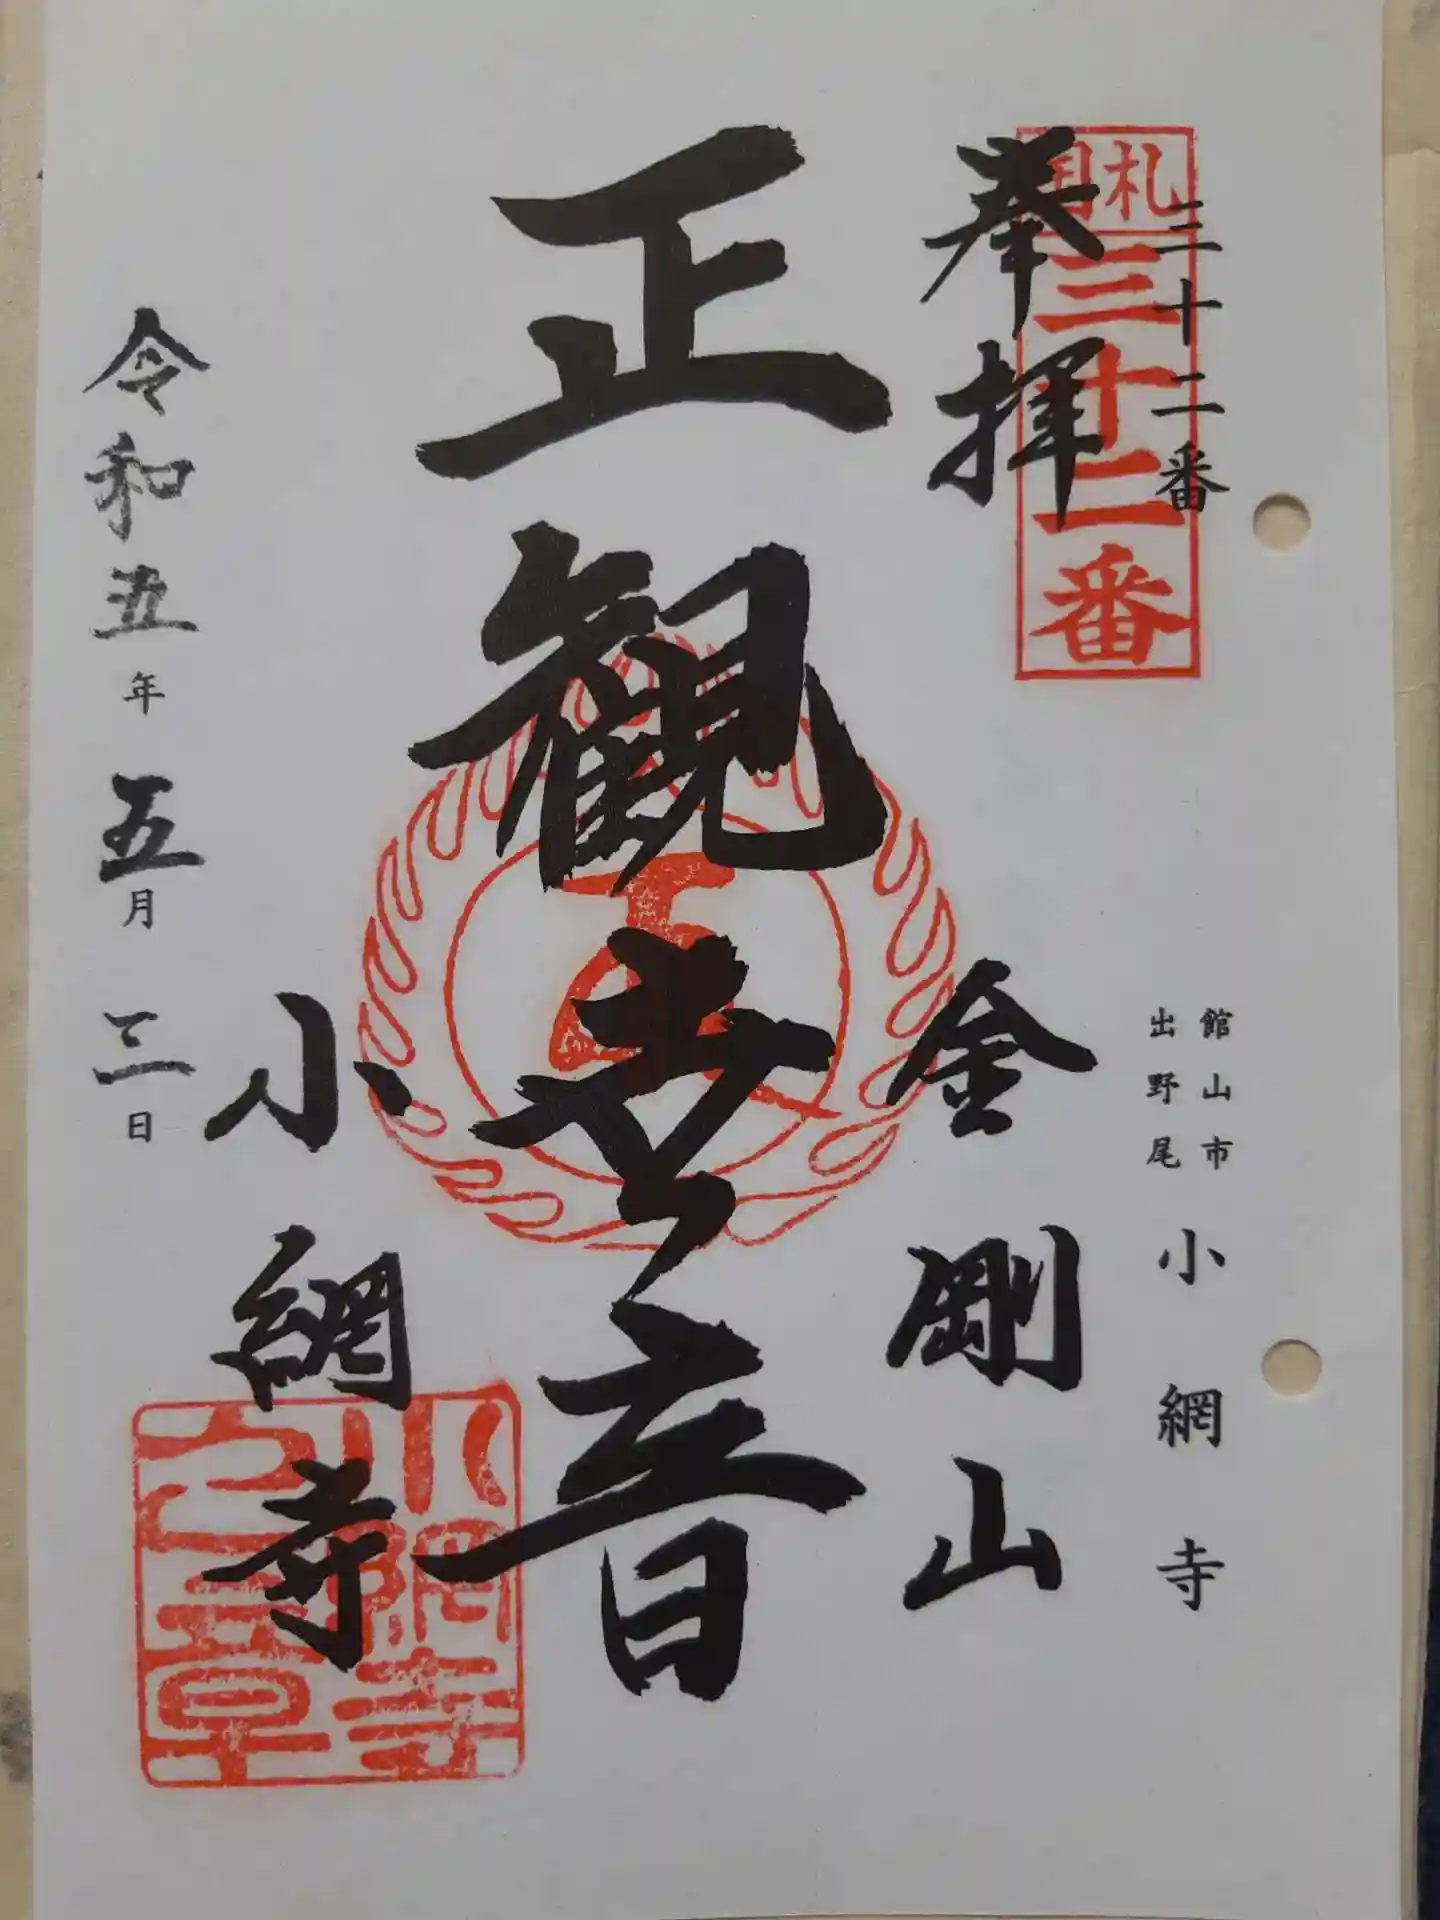 三十二番
館山市
出野尾
小網寺
札
三十二番
奉拝
金剛山
正観世音
小網寺
令和五年五月三日
小網寺